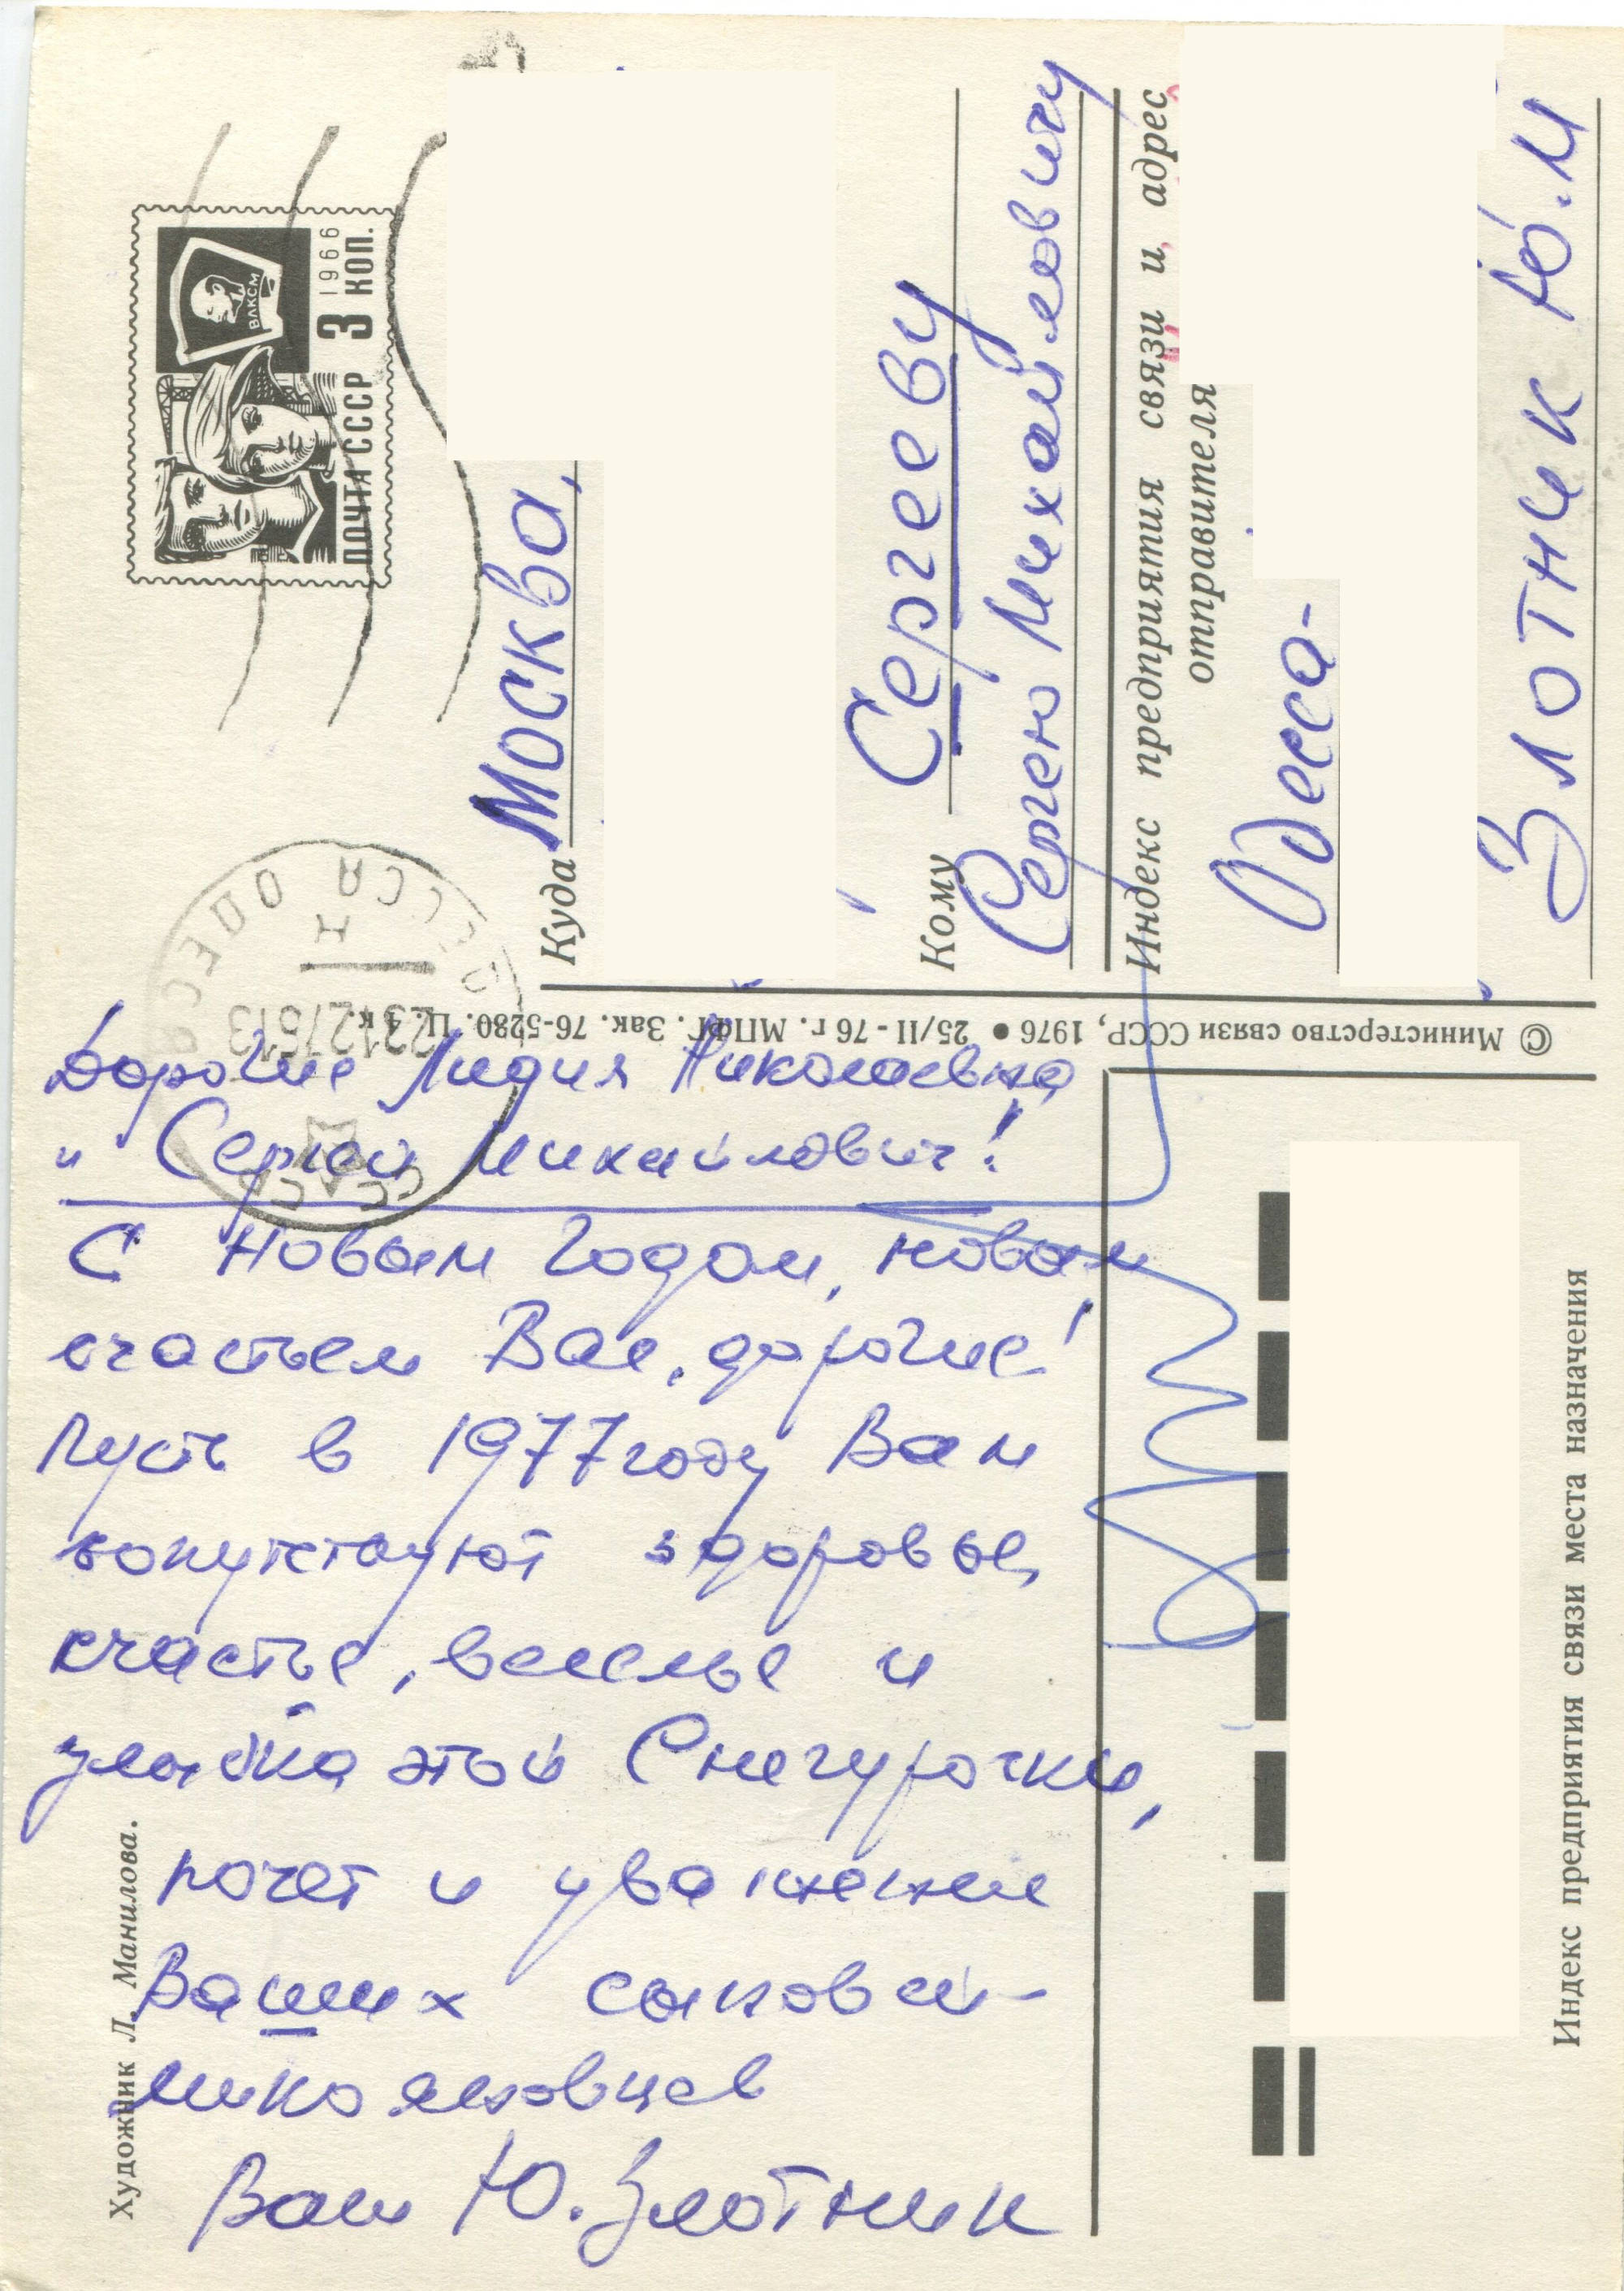 ПОЧТА СССР 3 КОП.
1966
ВЛКСМ
ОДЕССА
СССР
Куда Москва,
Кому Сергееву
Сергею Михайловичу
Индекс предприятия связи и адрес
отправителя
Одесса-
Злотник Ю.М
© Министерство связи СССР, 1976 • 25/II-76 г. МПФГ. Зак. 76-5280. Ц. 4 к.
Дорогие Лидия Николаевна
и Сергей Михайлович!
С Новым годом, новым
счастьем Вас, дорогие!
Пусть в 1977 году Вам
сопутствуют здоровье,
счастье, веселье и
улыбка этой Снегурочки,
почет и уважение
Ваших сыновей-
микояновцев
Ваш Ю. Злотник
Художник Л. Манилова.
Индекс предприятия связи места назначения